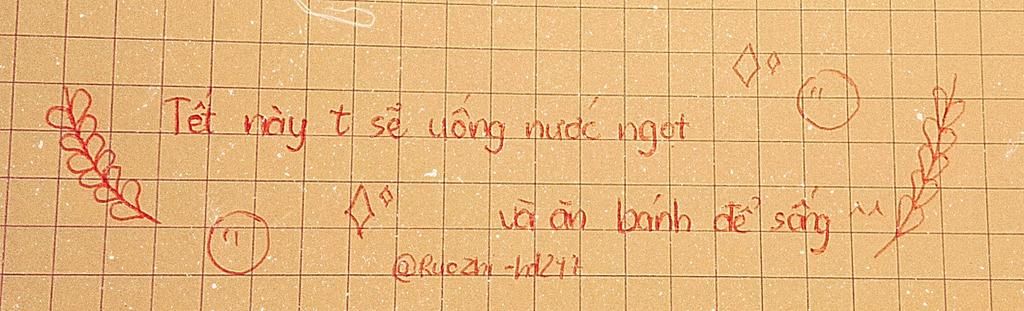 Tết này t sẽ uống nước ngọt
và ăn bánh để sống ^^